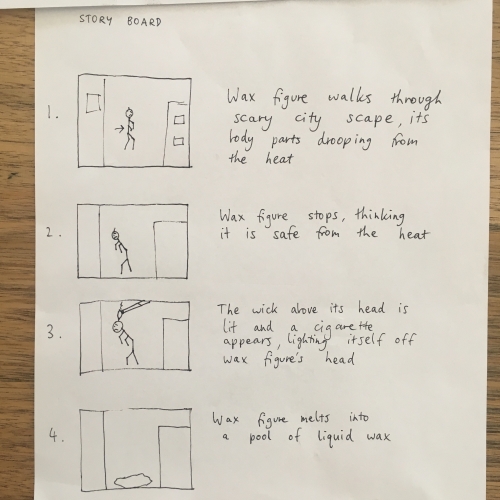 STORY BOARD
1.
Wax figure walks through
scary city scape, its
body parts drooping from
the heat
2.
Wax figure stops, thinking
it is safe from the heat
3.
The wick above its head is
lit and a cigarette
appears, lighting itself off
wax figure's head
4.
Wax figure melts into
a pool of liquid wax